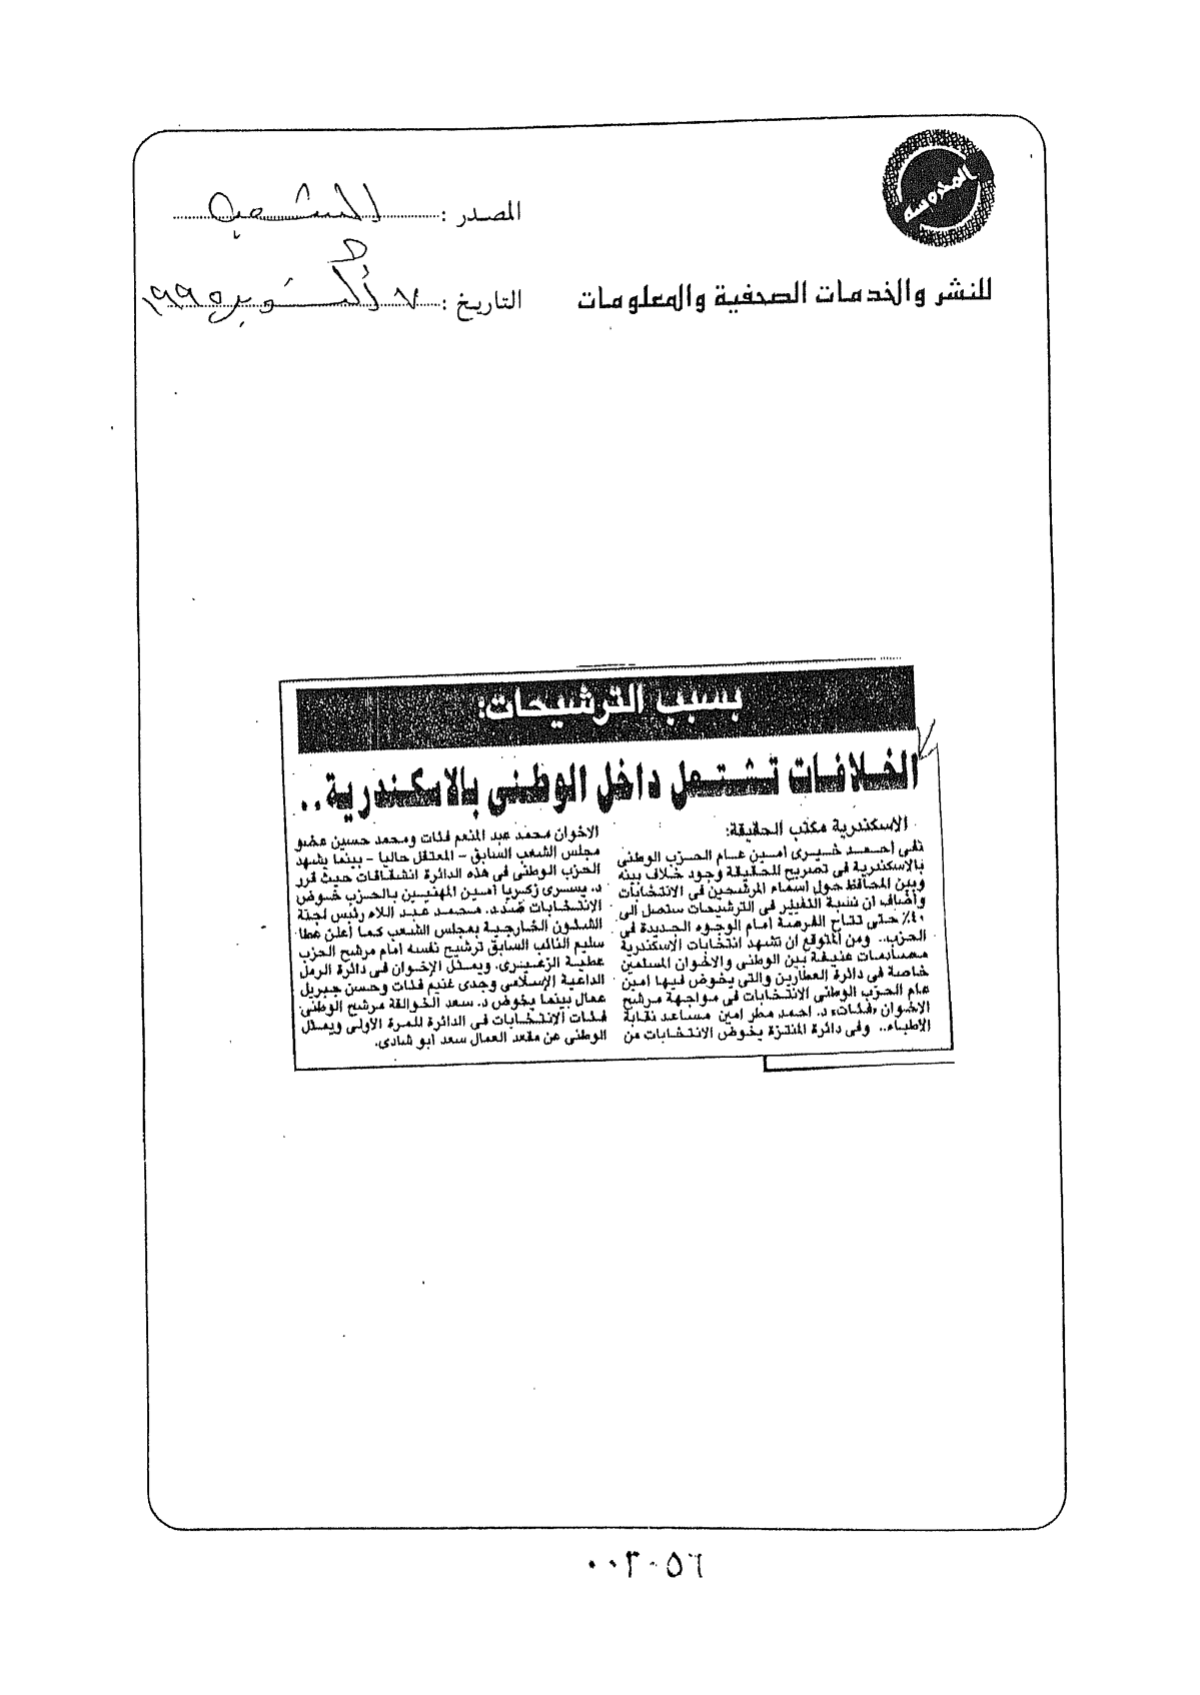 المحروسة
للنشر والخدمات الصحفية والمعلومات
المصدر : الشعب
التاريخ : ٧ أكتوبر ١٩٩٥
بسبب الترشيحات:
الخلافات تشتعل داخل الوطنى بالاسكندرية..
الاسكندرية مكتب الحقيقة:
نفى أحمد خيرى أمين عام الحزب الوطنى
بالاسكندرية فى تصريح للحقيقة وجود خلاف بينه
وبين المحافظ حول اسماء المرشحين فى الانتخابات
وأضاف ان نسبة التغيير فى الترشيحات ستصل الى
٤٠٪ حتى تتاح الفرصة أمام الوجوه الجديدة فى
الحزب.. ومن المتوقع ان تشهد انتخابات الاسكندرية
مصادمات عنيفة بين الوطنى والاخوان المسلمين
خاصة فى دائرة العطارين والتى يخوض فيها امين
عام الحزب الوطنى الانتخابات فى مواجهة مرشح
الاخوان «فئات» د. احمد مطر امين مساعد نقابة
الاطباء.. وفى دائرة المنتزة يخوض الانتخابات من
الاخوان محمد عبد المنعم فئات ومحمد حسين عضو
مجلس الشعب السابق - المعتقل حاليا - بينما يشهد
الحزب الوطنى فى هذه الدائرة انشقاقات حيث قرر
د. يسرى زكريا أمين المهنيين بالحزب خوض
الانتخابات ضد د. محمد عبد اللاه رئيس لجنة
الشئون الخارجية بمجلس الشعب كما أعلن عطا
سليم النائب السابق ترشيح نفسه أمام مرشح الحزب
عطية الزعيرى. ويمثل الإخوان فى دائرة الرمل
الداعية الإسلامى وجدى غنيم فئات وحسن جبريل
عمال بينما يخوض د. سعد الخوالقة مرشح الوطنى
فئات الانتخابات فى الدائرة للمرة الأولى ويمثل
الوطنى عن مقعد العمال سعد أبو شادى.
٠٠٣٠٥٦